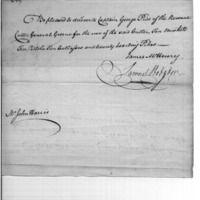 Be pleased to deliver to Captain George Price of the Revenue
Cutter General Greene for the use of the said Cutter, Ten Muskets
Ten Pistols Ten Cutlasses and twenty boarding Pikes.
James McHenry
Samuel Hodgdon
Mr John Harris